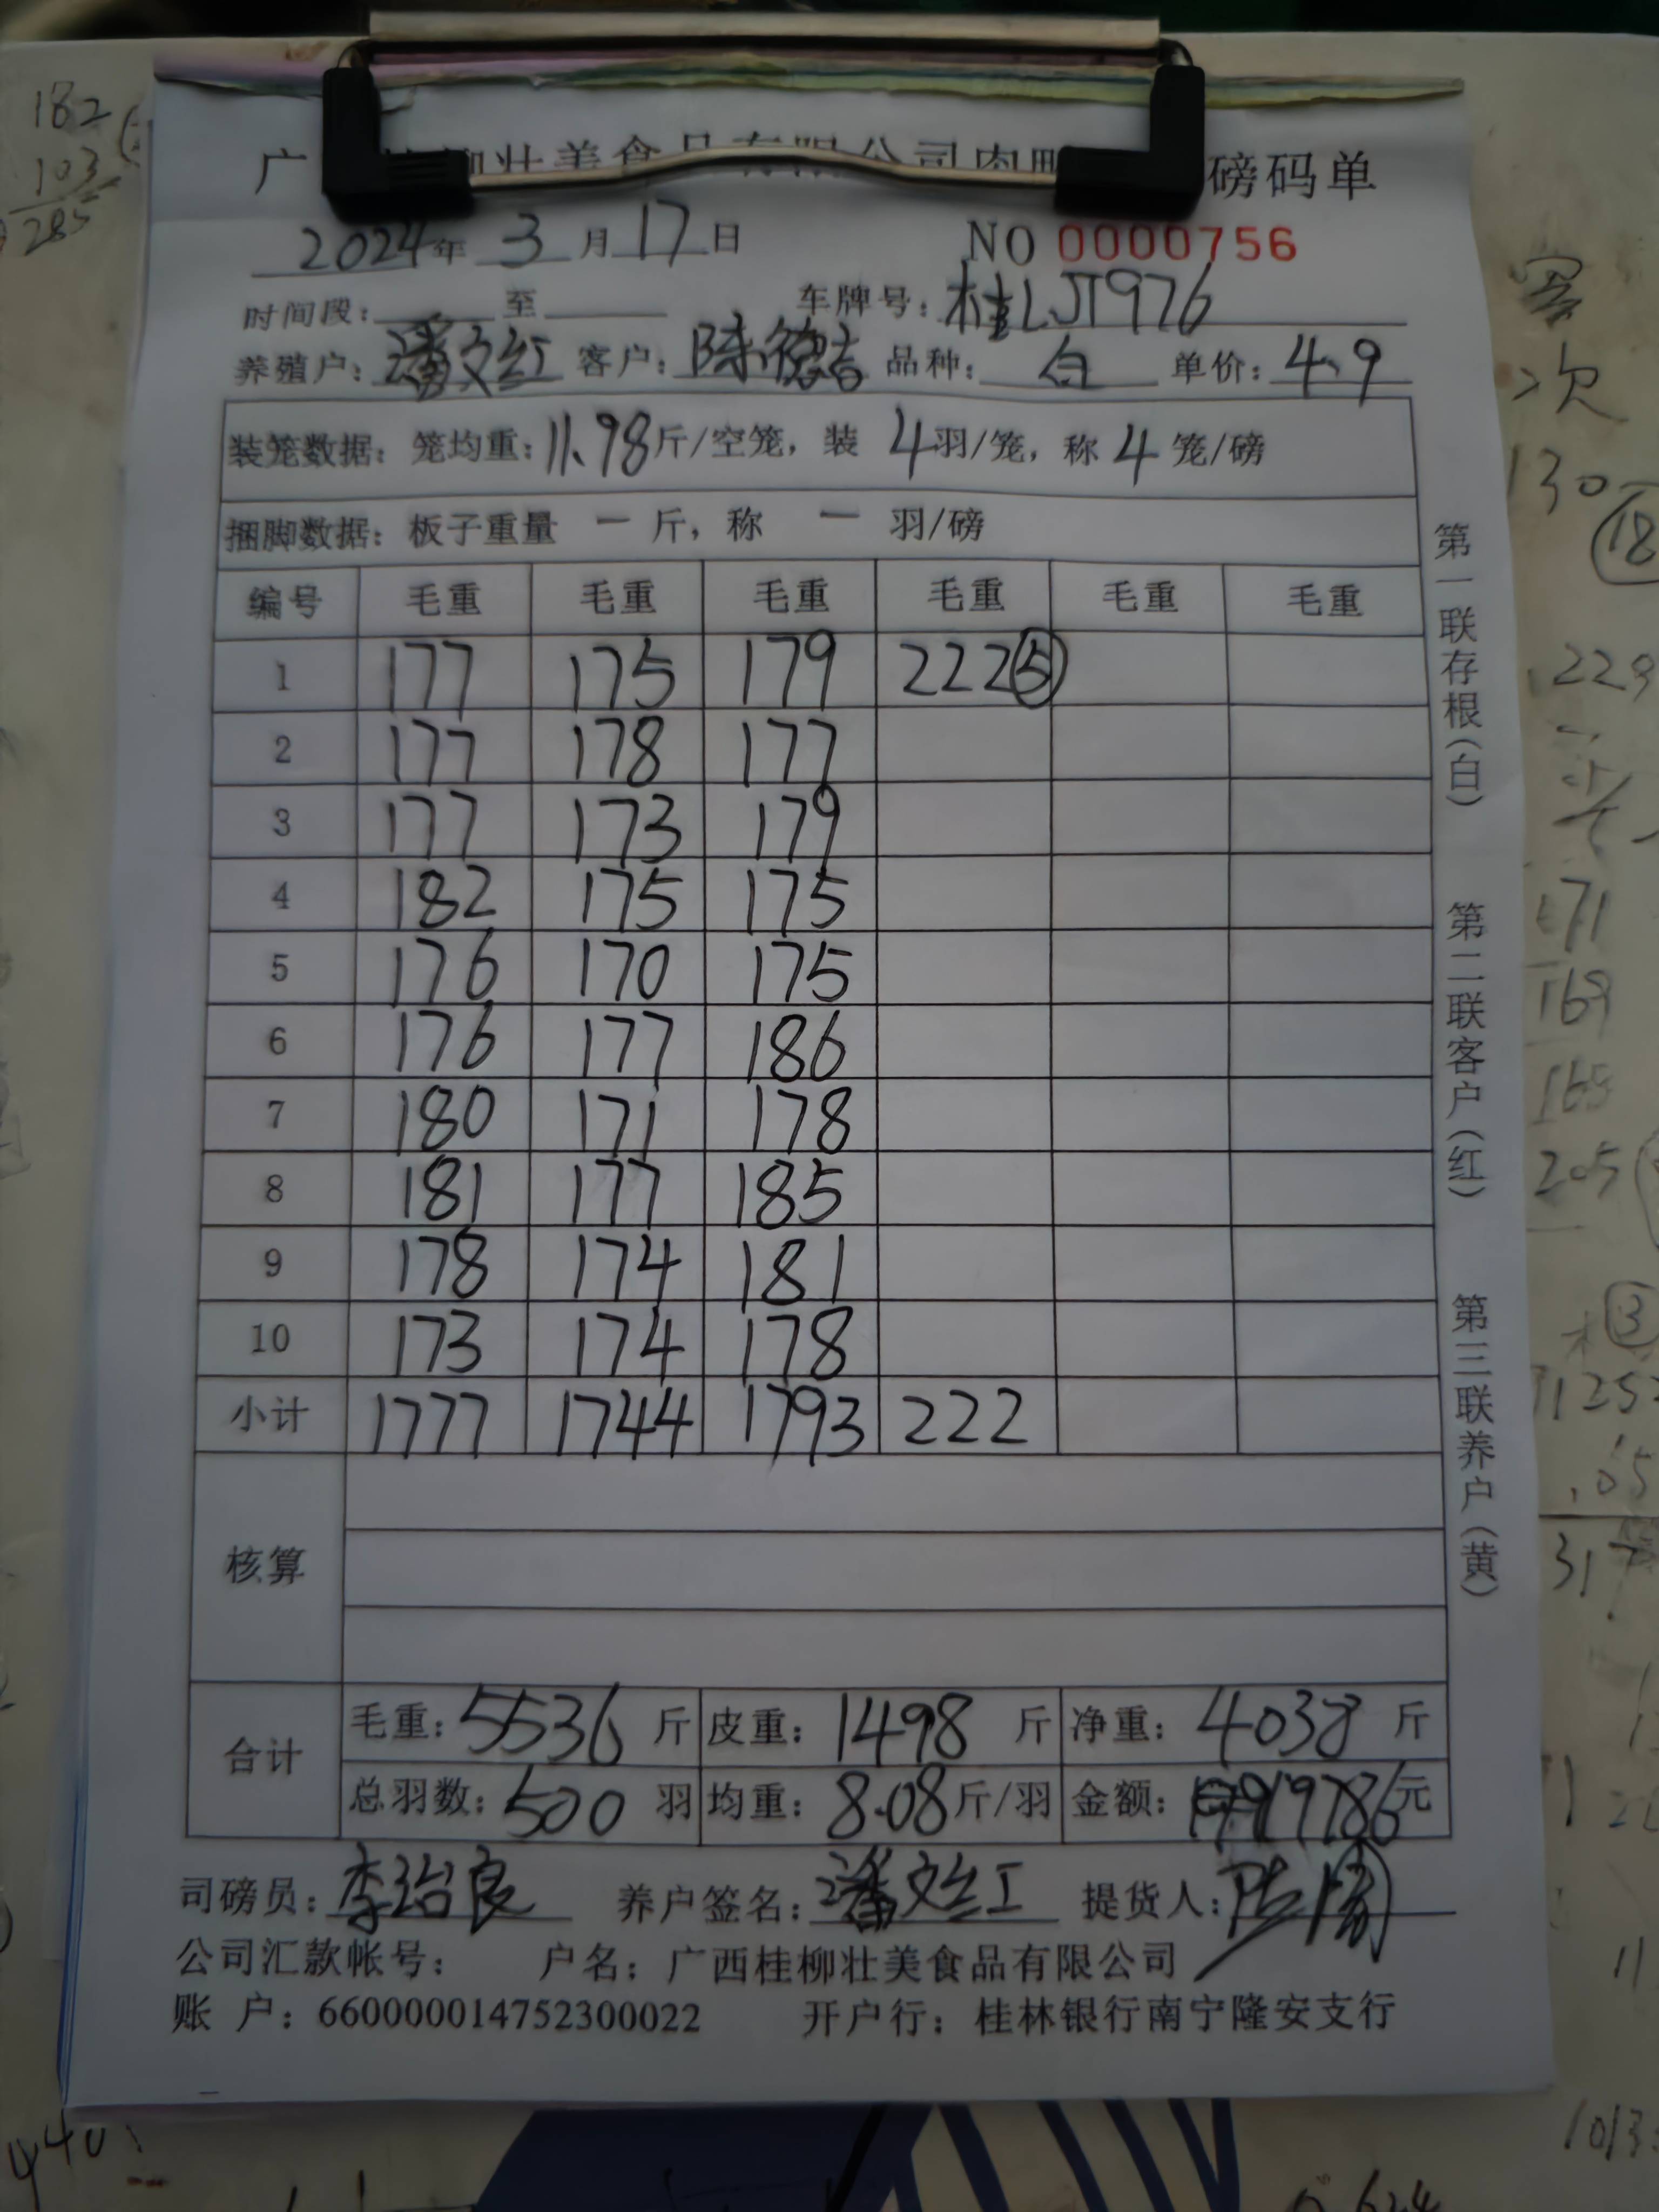 广 柳壮美食品有限公司肉鸭 磅码单
2024年 3月17日 NO 0000756
时间段: 至 车牌号:桂LJT976
养殖户:潘文红 客户:陈德吉 品种:白 单价:4.9
装笼数据:笼均重:11.98斤/空笼,装 4羽/笼,称4笼/磅
捆脚数据:板子重量 一 斤,称 一 羽/磅
编号 毛重 毛重 毛重 毛重 毛重 毛重
1 177 175 179 222⑤
2 177 178 177
3 177 173 179
4 182 175 175
5 176 170 175
6 176 177 186
7 180 171 178
8 181 177 185
9 178 174 181
10 173 174 178
小计 1777 1744 1793 222
核算
合计
毛重:5536斤 皮重:1498斤 净重:4038斤
总羽数:500羽 均重:8.08斤/羽 金额:19786元
司磅员:李治良 养户签名:潘文红 提货人:
公司汇款帐号: 户名:广西桂柳壮美食品有限公司
账 户:660000014752300022 开户行:桂林银行南宁隆安支行
第一联存根(白)
第二联客户(红)
第三联养户(黄)
182
103
285
次
130
18
171
169
165
205
③